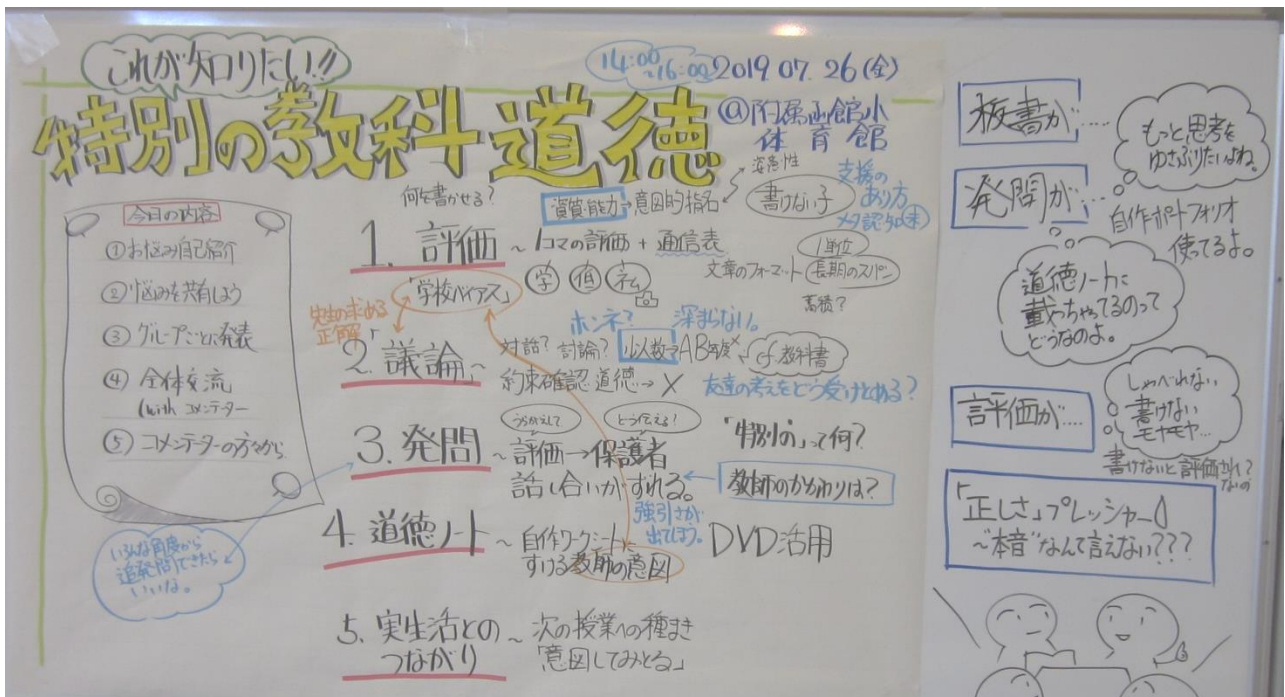 これが知りたい!!
14:00
~16:00
2019 07. 26 (金)
特別の教科道徳
@附属函館小
体育館
今日の内容
①お悩み自己紹介
②悩みを共有しよう
③グループごとに発表
④全体交流
(with コメンテーター
⑤コメンテーターの方々から
いろんな角度から
追発問できたら
いいな。
何を書かせる?
資質・能力→意図的指名
書けない子
支援の
あり方
メタ認知
1. 評価 ~ 1コマの評価 + 通信表
1単位
文章のフォーマット
長期のスパン
蓄積?
「学校バイアス」
先生の求める
正解
ホンネ?
深まらない。
2.「議論」~ 対話? 討論?
少人数→AB年度
教科書
約束確認 道徳→×
友達の考えをどう受けとめる?
どう伝える?
3. 発問 ~ 評価→保護者
「特別の」って何?
話し合いがずれる。
教師のかかわりは?
強引さが
出てしまう。
4. 道徳ノート ~ 自作ワークシートに
すける教師の意図
DVD活用
5. 実生活との
つながり
~ 次の授業への種まき
「意図してみとる」
板書が…
もっと思考を
ゆさぶりたいよね。
発問が
自作ポートフォリオ
使ってるよ。
道徳ノートに
載っちゃってるのって
どうなのよ。
評価が…
しゃべれない
書けない
モヤモヤ…
書けないと評価されないの?
「正しさ」プレッシャー
~"本音"なんて言えない???